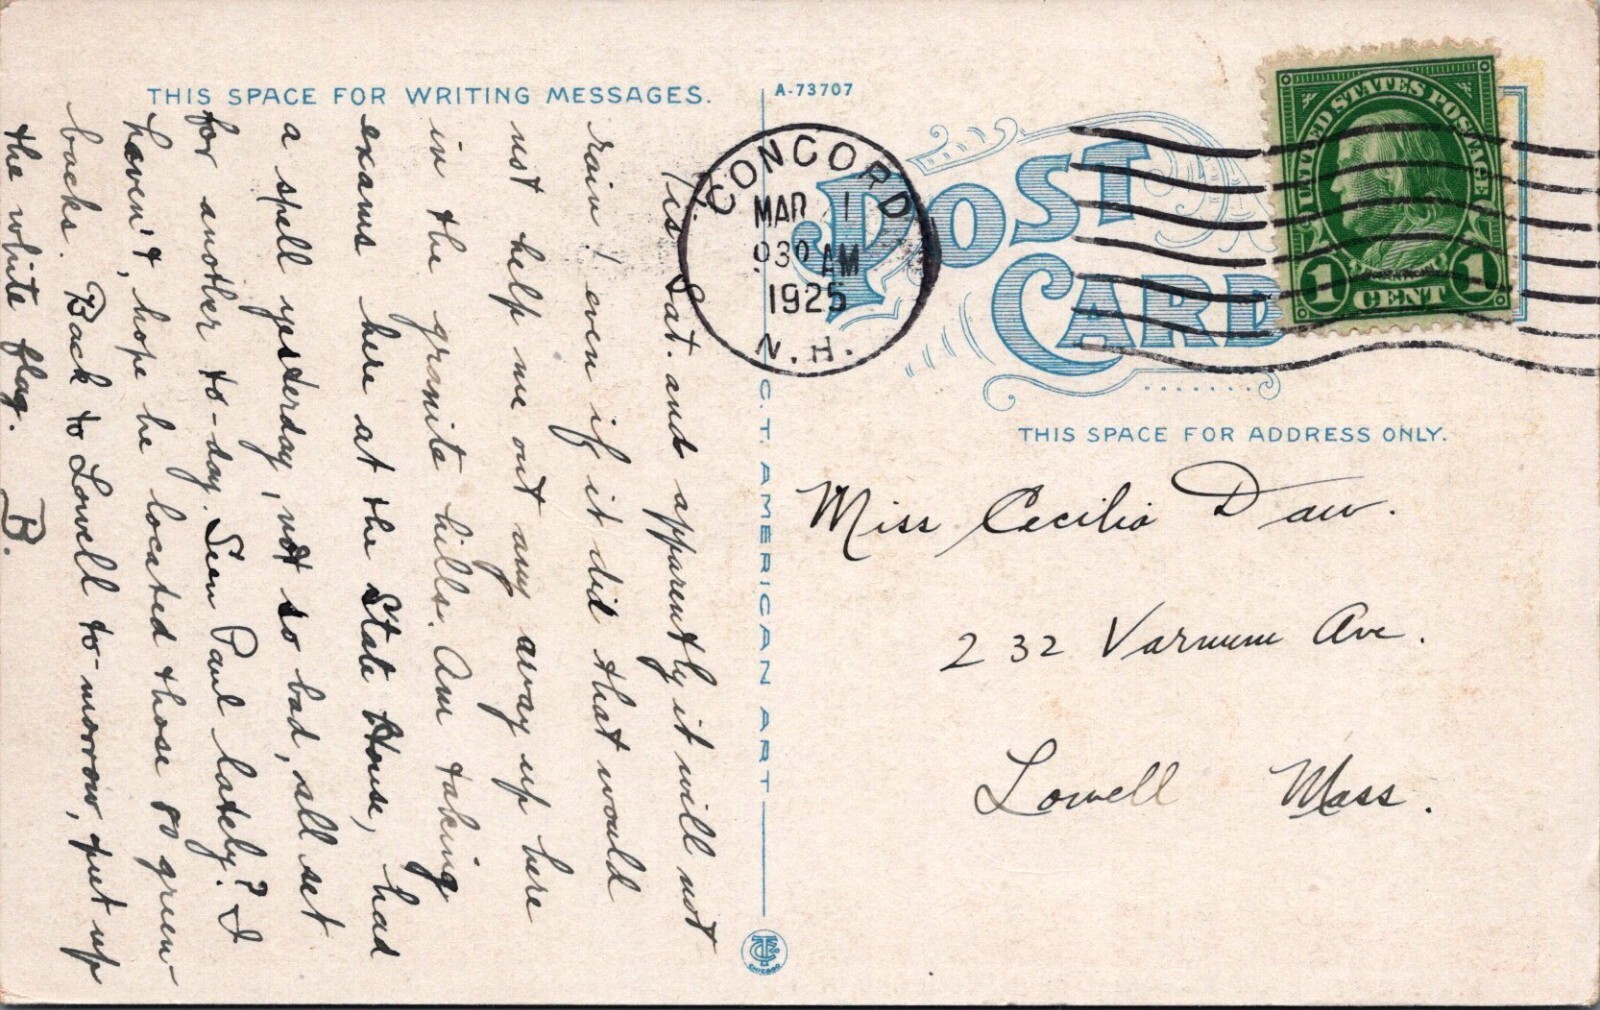 THIS SPACE FOR WRITING MESSAGES.
'Tis Sat. and apparently it will not
rain, even if it did that would
not help me out any away up here
in the granite hills. Am taking
exams here at the State House, had
a spell yesterday, not so bad, all set
for another to-day. Seen Paul lately? I
haven't, hope he located those 80 green-
backs. Back to Lowell to-morrow, put up
the white flag. B.
A-73707
POST
CARD
CONCORD
MAR 1
930 AM
1925
N.H.
UNITED STATES POSTAGE
1 CENT 1
C.T. AMERICAN ART
CHICAGO
THIS SPACE FOR ADDRESS ONLY.
Miss Cecilia Daw.
232 Varnum Ave.
Lowell Mass.